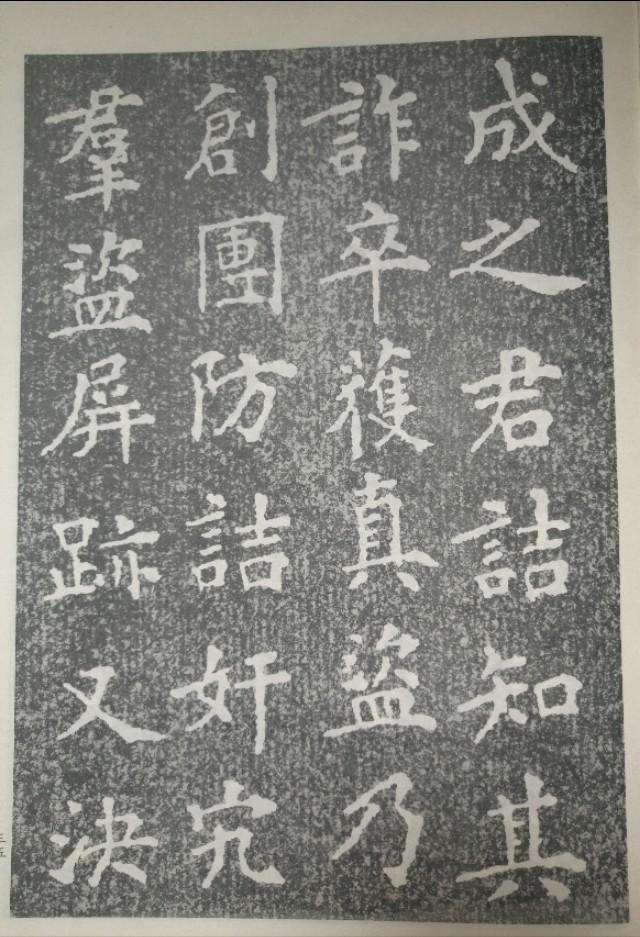 成之君詰知其
詐卒獲真盜乃
創團防詰奸宄
羣盜屏跡又決
三五